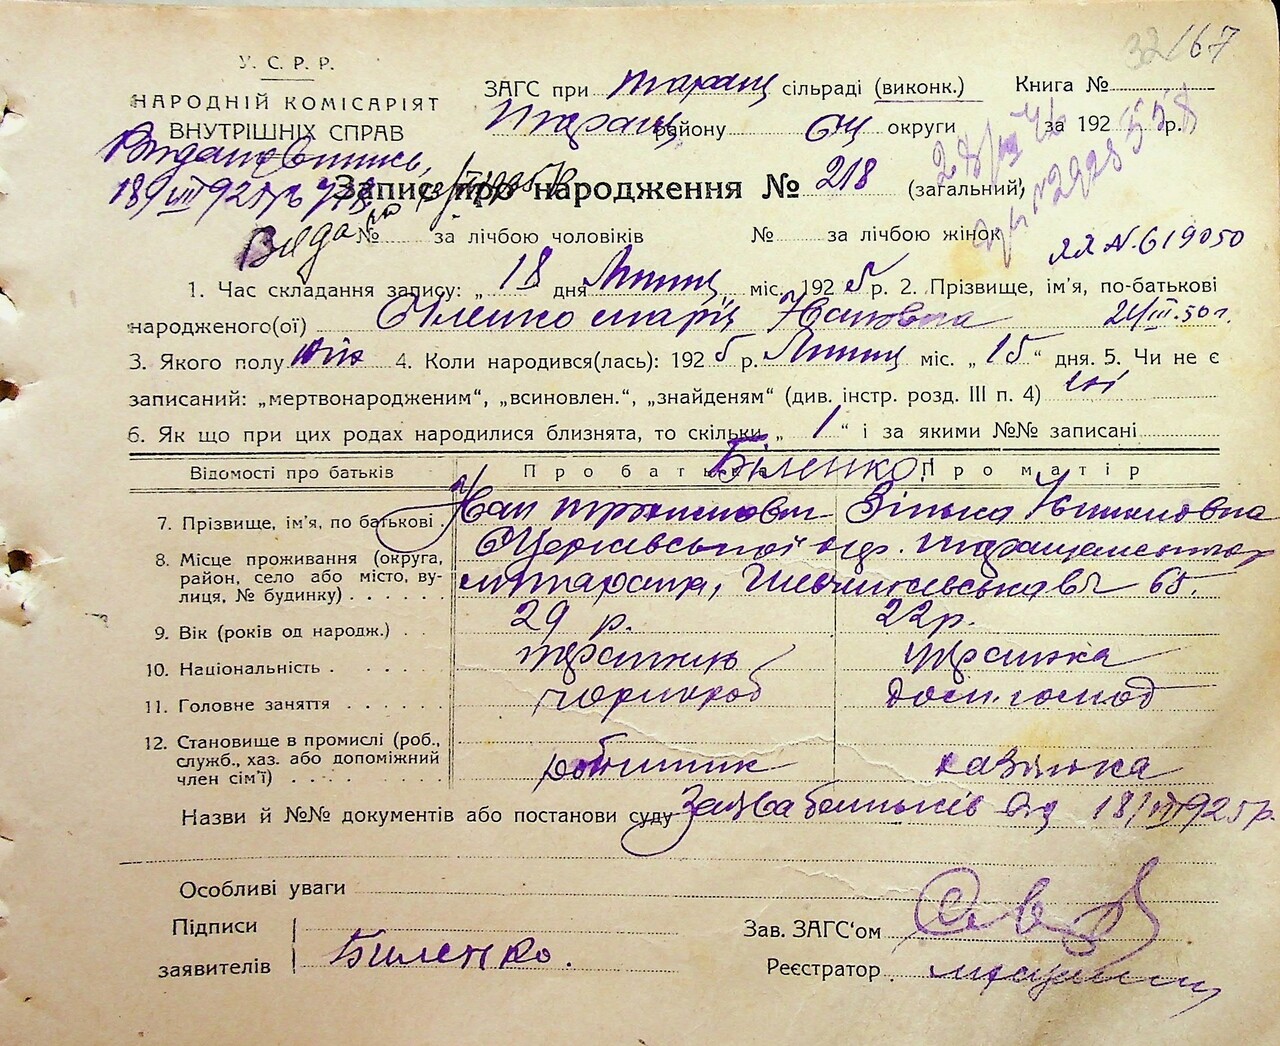 32/67
У. С. Р. Р.
НАРОДНІЙ КОМІСАРІЯТ
ВНУТРІШНІХ СПРАВ
ЗАГС при Таращ сільраді (виконк.) Книга №
Таращ району БЦ округи за 1925 р.
Запис про народження № 218 (загальний)
№ за лічбою чоловіків № за лічбою жінок
ЯЯ № 619050
1. Час складання запису: „ 18 дня Липц міс. 1925 р. 2. Прізвище, ім'я, по-батькові
народженого(ої) Біленко Марія Ивановна 24/III.50 г.
3. Якого полу жін 4. Коли народився(лась): 1925 р. Липц міс. „ 15 “ дня. 5. Чи не є
записаний: „мертвонародженим“, „всиновлен.“, „знайденям“ (див. інстр. розд. III п. 4) ні
6. Як що при цих родах народилися близнята, то скільки „ 1 “ і за якими №№ записані
Відомості про батьків Про батька Біленко Про матір
7. Прізвище, ім'я, по батькові Иван Зінька
8. Місце проживання (округа,
район, село або місто, ву-
лиця, № будинку) м. Тараща, 65.
9. Вік (років од народж.) 29 р. 22 р.
10. Національність українець українка
11. Головне заняття чорнороб дом. господ
12. Становище в промислі (роб.,
служб., хаз. або допоміжний
член сім'ї) робітник хазяйка
Назви й №№ документів або постанови суду Заява батьків від 18/VII 1925 р.
Особливі уваги
Підписи
заявителів Биленко.
Зав. ЗАГС'ом
Реєстратор